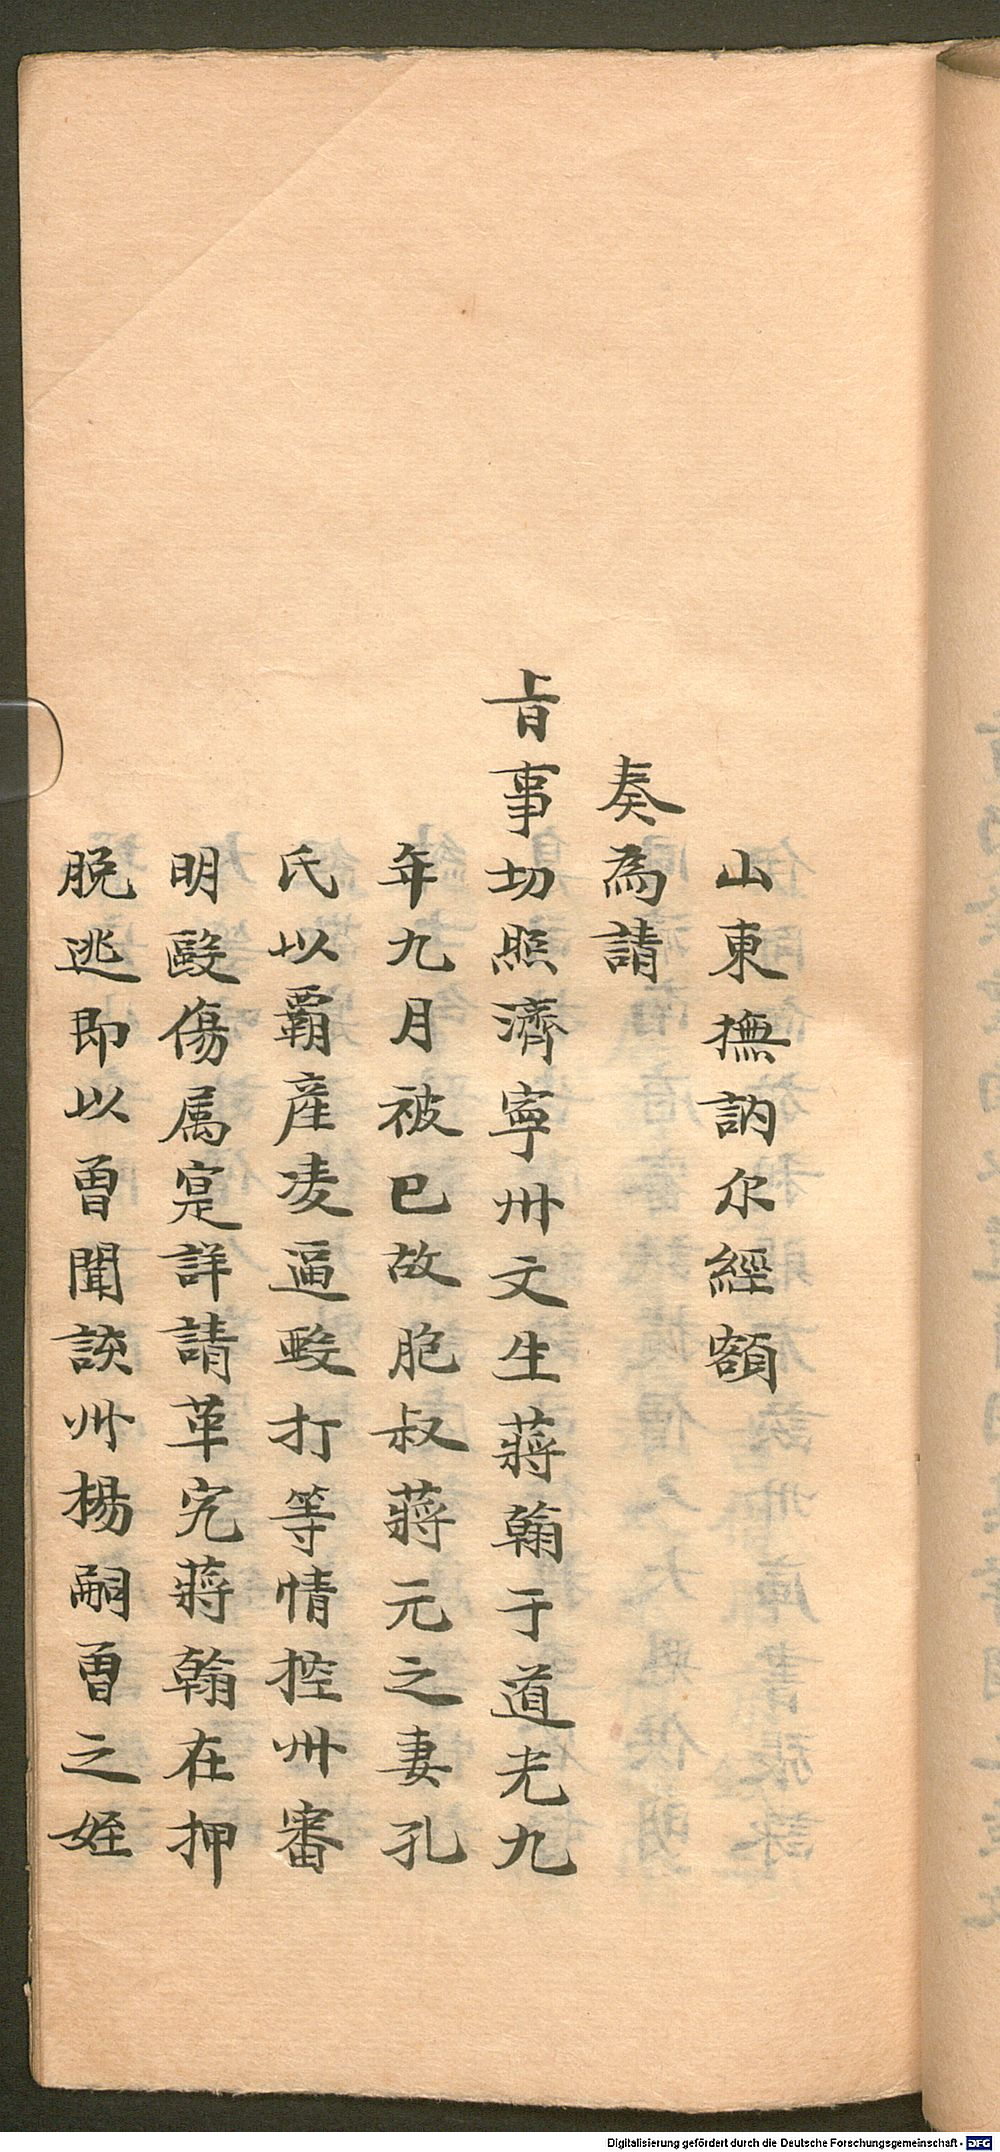 山東撫訥尔經額
奏為請
旨事切照濟寧州文生蔣翰于道光九
年九月被已故胞叔蔣元之妻孔
氏以霸產凌逼毆打等情控州審
明毆傷属寔詳請革究蔣翰在押
脫逃即以曾聞該州楊嗣曾之姪
Digitalisierung gefördert durch die Deutsche Forschungsgemeinschaft - DFG